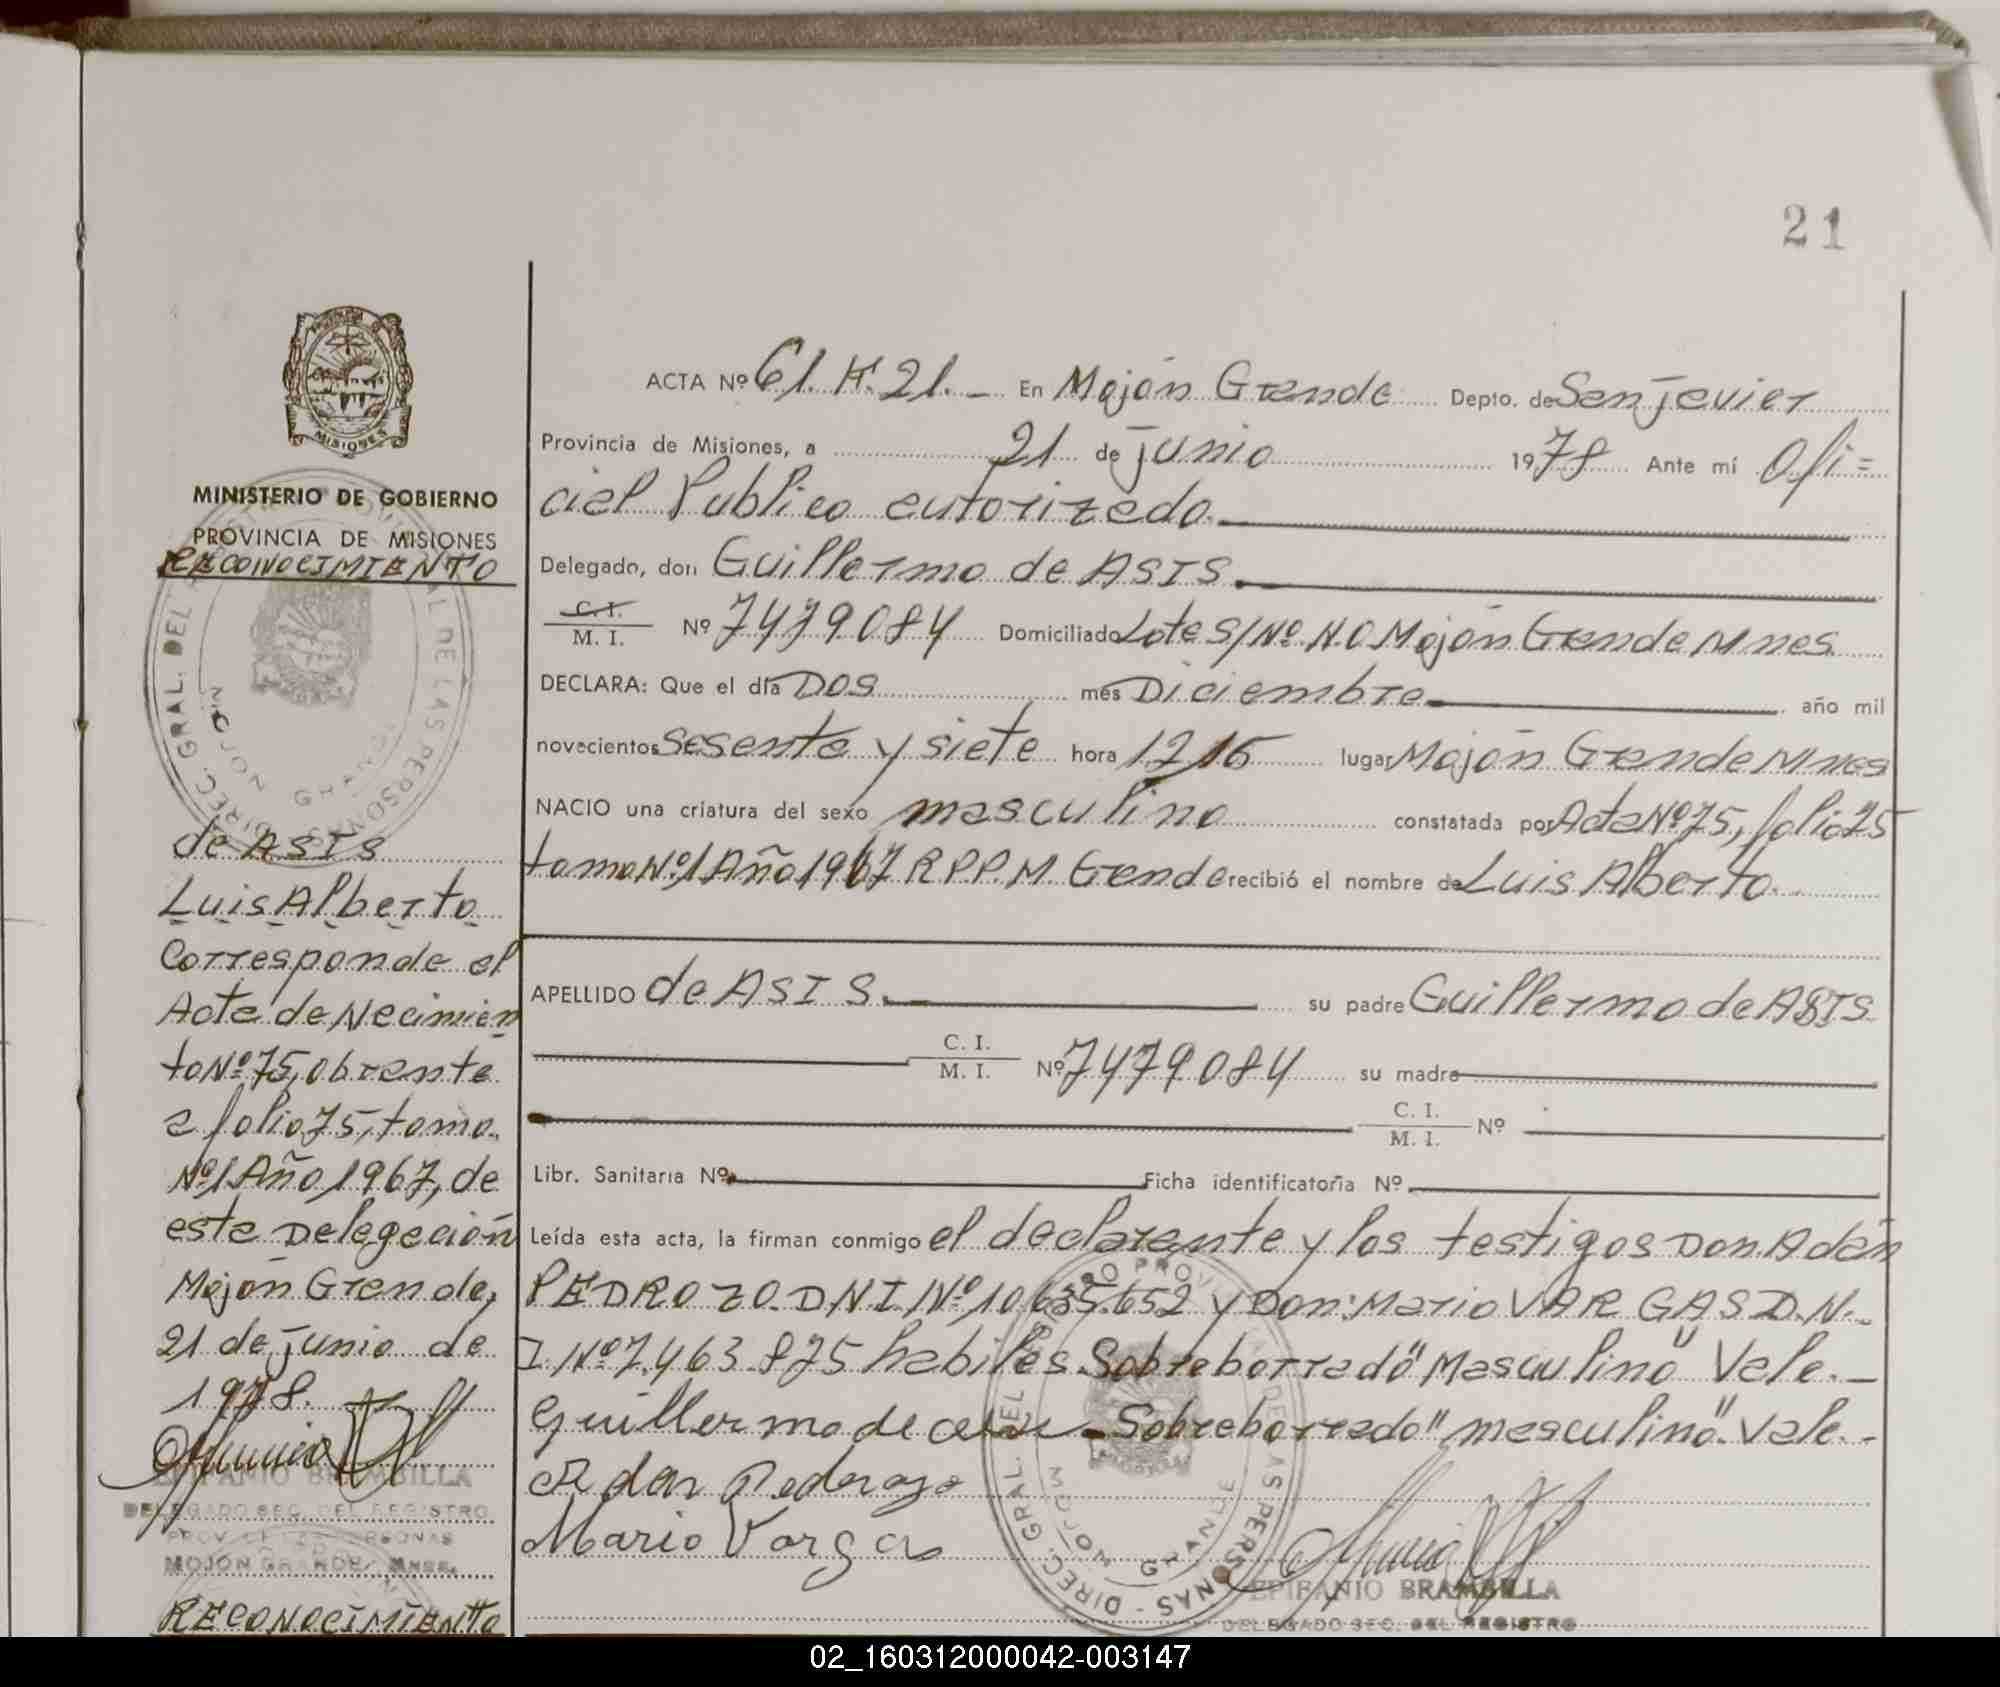 21
ACTA Nº 61. F. 21. - En Mojón Grande Depto. de San Javier
Provincia de Misiones, a 21 de junio 1978 Ante mí Ofi=
cial Publico autorizado.
Delegado, don Guillermo de ASIS.
C. I. / M. I. Nº 7479084 Domiciliado Lote S/Nº N.O Mojón Grande Mnes.
DECLARA: Que el día DOS mes Diciembre año mil
novecientos Sesenta y siete hora 12,15 lugar Mojón Grande Mnes
NACIO una criatura del sexo masculino constatada por Acta Nº 75, folio 75
tomo Nº 1 Año 1967 R P P. M Grande recibió el nombre de Luis Alberto.
APELLIDO de ASIS. su padre Guillermo de ASIS
C. I. / M. I. Nº 7479084 su madre
C. I. / M. I. Nº
Libr. Sanitaria Nº Ficha identificatoria Nº
Leída esta acta, la firman conmigo el declarante y los testigos Don Adán
PEDROZO. D N I. Nº 10.635.652 y Don: Mario VARGAS D. N.
I. Nº 7.463.875 habiles. Sobreborrado "Masculino" Vale. -
Guillermo de - Sobreborrado "masculino". Vale. -
Adan Pedrozo
Mario Vargas
EPIFANIO BRAMBILLA
DELEGADO SEC. DEL REGISTRO
MISIONES
MINISTERIO DE GOBIERNO
PROVINCIA DE MISIONES
RECONOCIMIENTO
de ASIS
Luis Alberto
Corresponde al
Acta de Nacimien
to Nº 75, obrante
a folio 75, tomo
Nº 1 Año 1967, de
esta Delegación
Mojón Grande,
21 de junio de
1978.
EPIFANIO BRAMBILLA
DELEGADO SEC. DEL REGISTRO
PROV. DE LAS PERSONAS
MOJON GRANDE, Mnes.
RECONOCIMIENTO
02_160312000042-003147